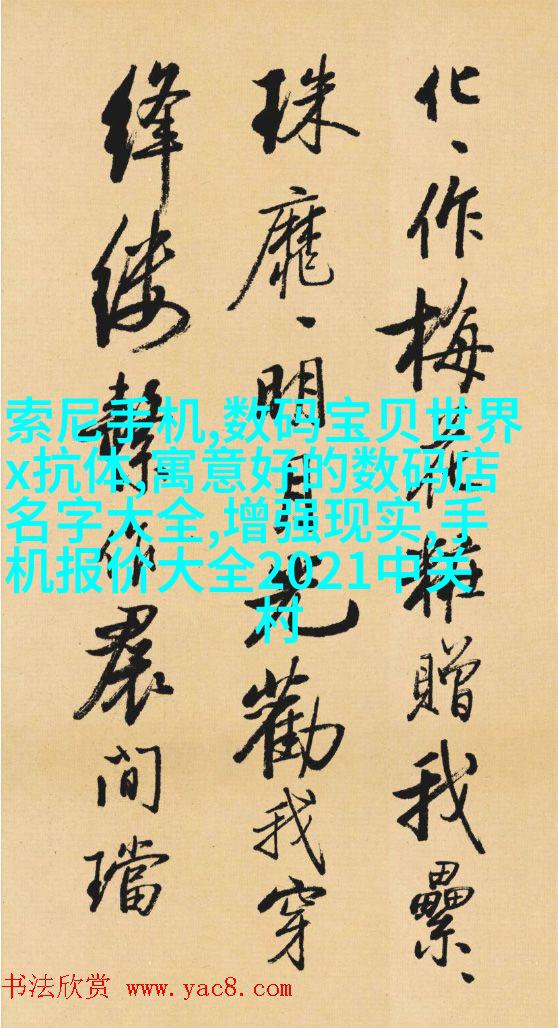 化、作梅花糚贈我纍、
珠靡、明月光勸我穿
絳縷繫作裠間璫
索尼手机,数码宝贝世界
x抗体,寓意好的数码店
名字大全,增强现实,手
机报价大全2021中关
村
书法欣赏 www.yac8.com